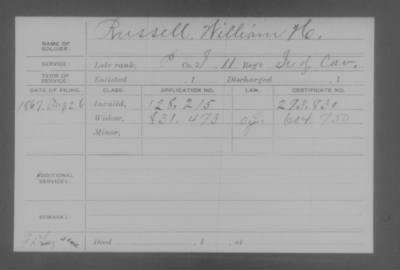 Russell, William H.
NAME OF SOLDIER:
SERVICE: Late rank, P Co. I, 11 Reg't Cav.
TERM OF SERVICE Enlisted , 1 Discharged , 1
DATE OF FILING. CLASS. APPLICATION NO. LAW. CERTIFICATE NO.
1867. Aug 26 Invalid, 128.215 293.830
Widow, 831.473 604.750
Minor,
ADDITIONAL SERVICES:
REMARKS:
Died , 1 , at